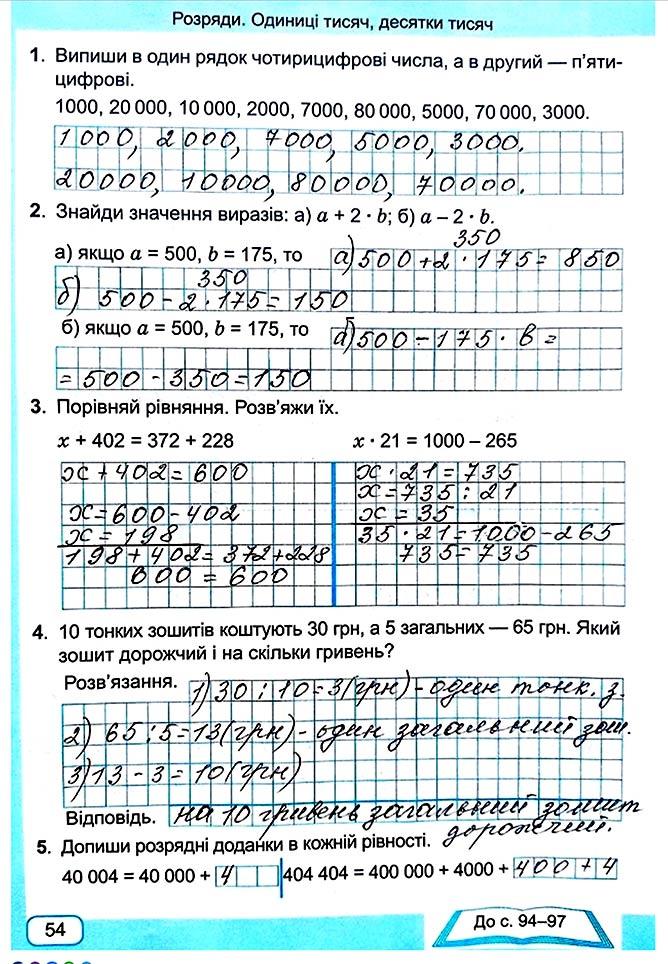 Розряди. Одиниці тисяч, десятки тисяч
1. Випиши в один рядок чотирицифрові числа, а в другий — п'яти-
цифрові.
1000, 20 000, 10 000, 2000, 7000, 80 000, 5000, 70 000, 3000.
1000, 2000, 7000, 5000, 3000.
20000, 10000, 80000, 70000.
2. Знайди значення виразів: а) a + 2 · b; б) a – 2 · b.
350
а) якщо a = 500, b = 175, то а) 500 + 2 · 175 = 850
350
б) 500 - 2 · 175 = 150
б) якщо a = 500, b = 175, то б) 500 - 175 · в =
= 500 - 350 = 150
3. Порівняй рівняння. Розв'яжи їх.
x + 402 = 372 + 228 x · 21 = 1000 – 265
x + 402 = 600 x · 21 = 735
x = 735 : 21
x = 600 - 402 x = 35
x = 198 35 · 21 = 1000 - 265
198 + 402 = 372 + 228 735 = 735
600 = 600
4. 10 тонких зошитів коштують 30 грн, а 5 загальних — 65 грн. Який
зошит дорожчий і на скільки гривень?
Розв'язання. 1) 30 : 10 = 3 (грн) - один тонк. з.
2) 65 : 5 = 13 (грн) - один загальний зош.
3) 13 - 3 = 10 (грн)
Відповідь. на 10 гривень загальний зошит
дорожчий.
5. Допиши розрядні доданки в кожній рівності.
40 004 = 40 000 + 4 404 404 = 400 000 + 4000 + 400 + 4
54 До с. 94–97